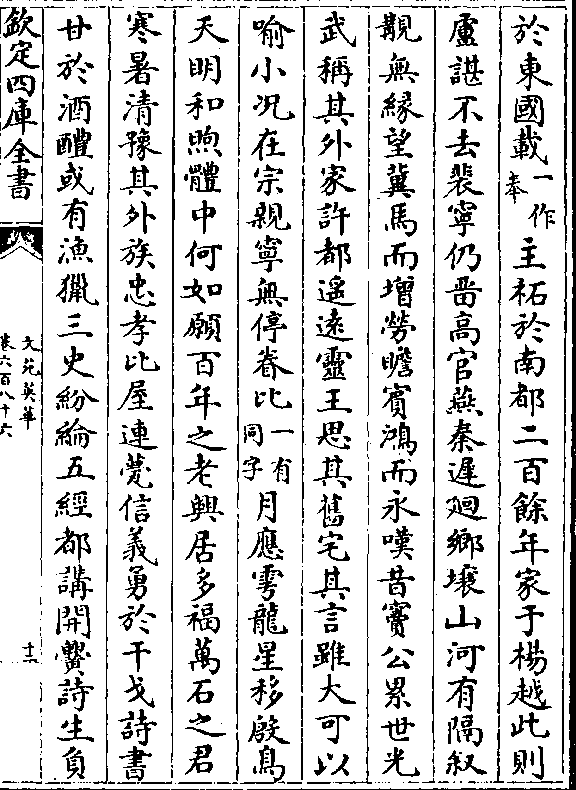 於東國載一作奉主祏於南都二百餘年家于楊越此則
盧諶不去裴寧仍啚高官燕秦遲𢌞鄉壤山河有隔叙
覯無縁望冀馬而增勞瞻賓鴻而永嘆昔竇公累世光
武稱其外家許都遥遠靈王思其舊宅其言雖大可以
喻小况在宗親寧無停眷比一有同字月應雩龍星移殷鳥
天明和煦體中何如願百年之老興居多福萬石之君
寒暑清豫其外族忠孝比屋連甍信義勇於干戈詩書
甘於酒醴或有漁獵三史紛綸五經都講開黌詩生負
欽定四庫全書
文苑英華
卷六百八十六
十二